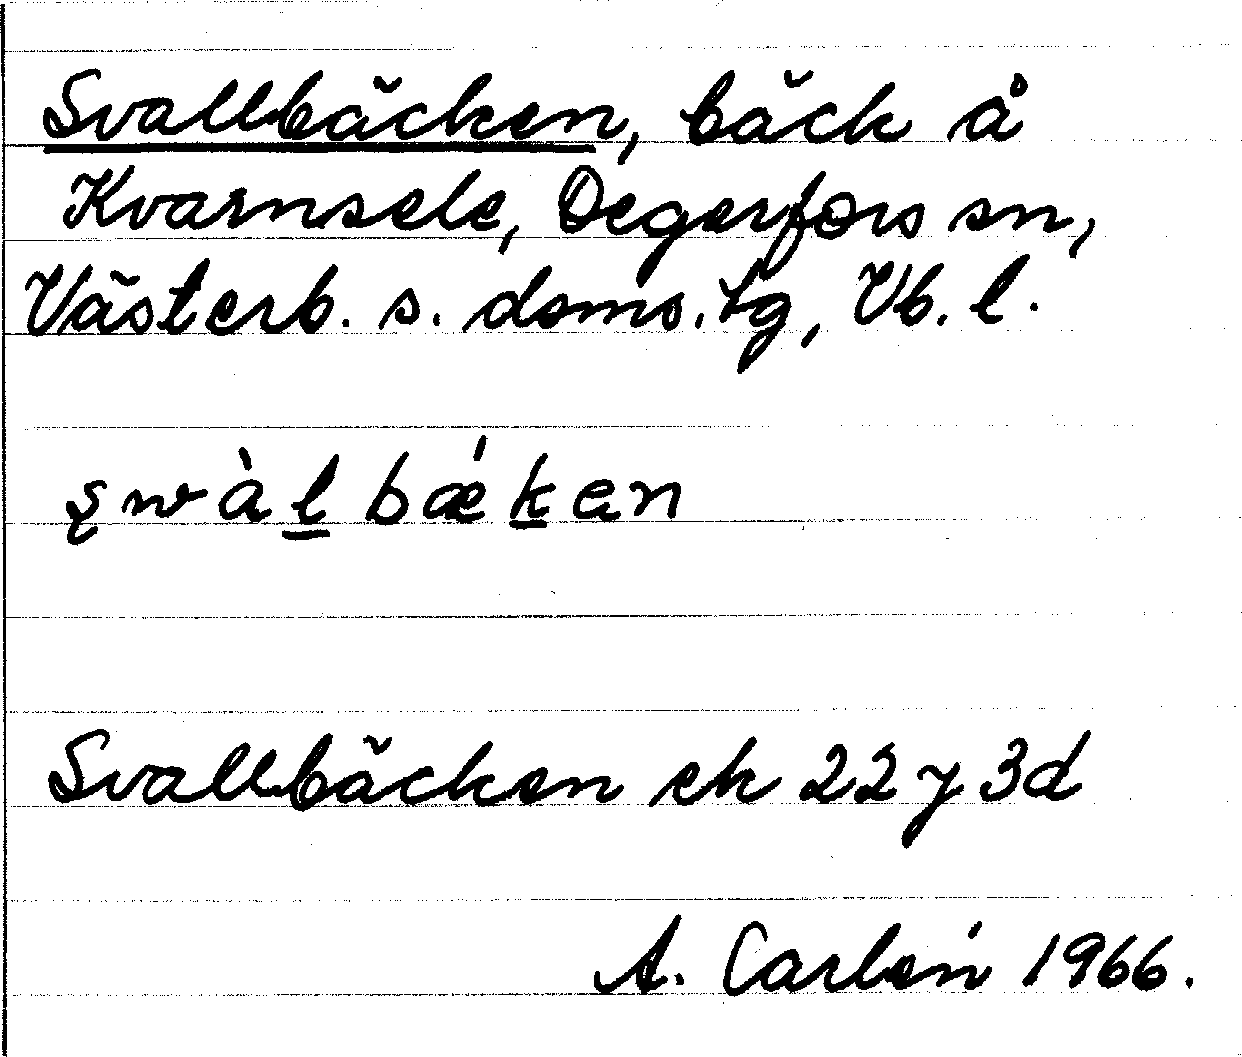 Svallbäcken, bäck å
Kvarnsele, Degerfors sn,
Västerb. s. doms. tg, Vb. l.
s̨wàl̲ bǽk̲en
Svallbäcken ek 22 J 3d
A. Carlén 1966.